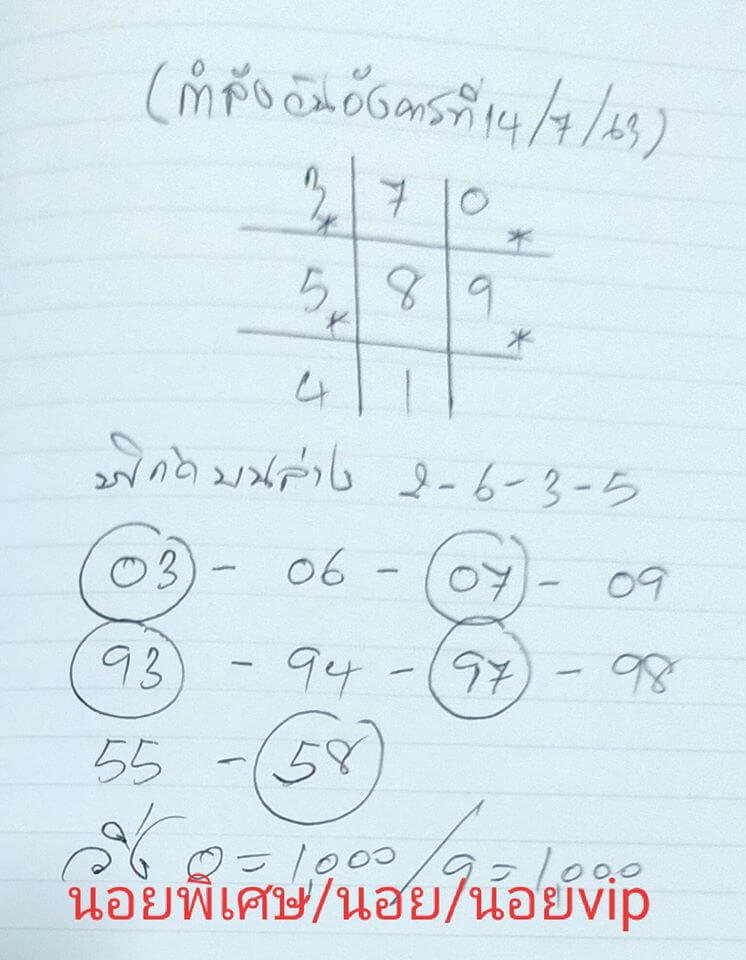 (กำลังวันอังคารที่ 14/7/63)
3* 7 0*
5* 8 9*
4 1
พิกัดบนล่าง 2-6-3-5
03 - 06 - 07 - 09
93 - 94 - 97 - 98
55 - 58
วิ่ง 0=1,000/9=1,000
นอยพิเศษ/นอย/นอยvip